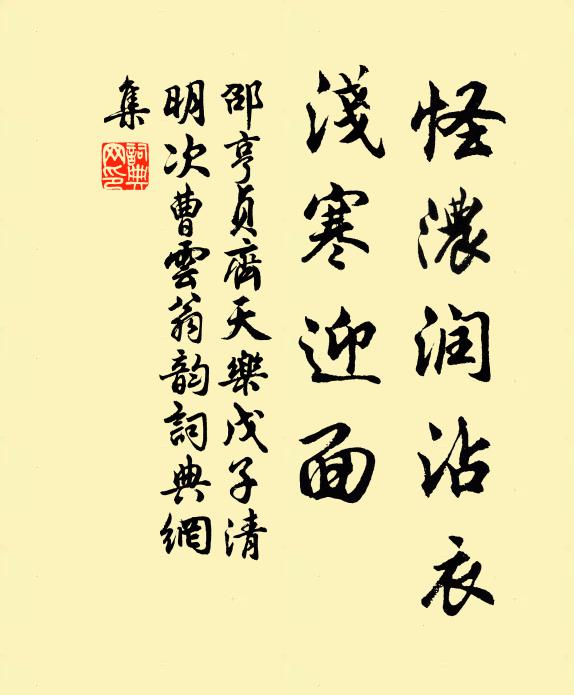 怪濃润沾衣
淺寒迎面
邵亨貞齊天樂戊子清
明次曹雲翁韵詞典網
集
詞典
网印